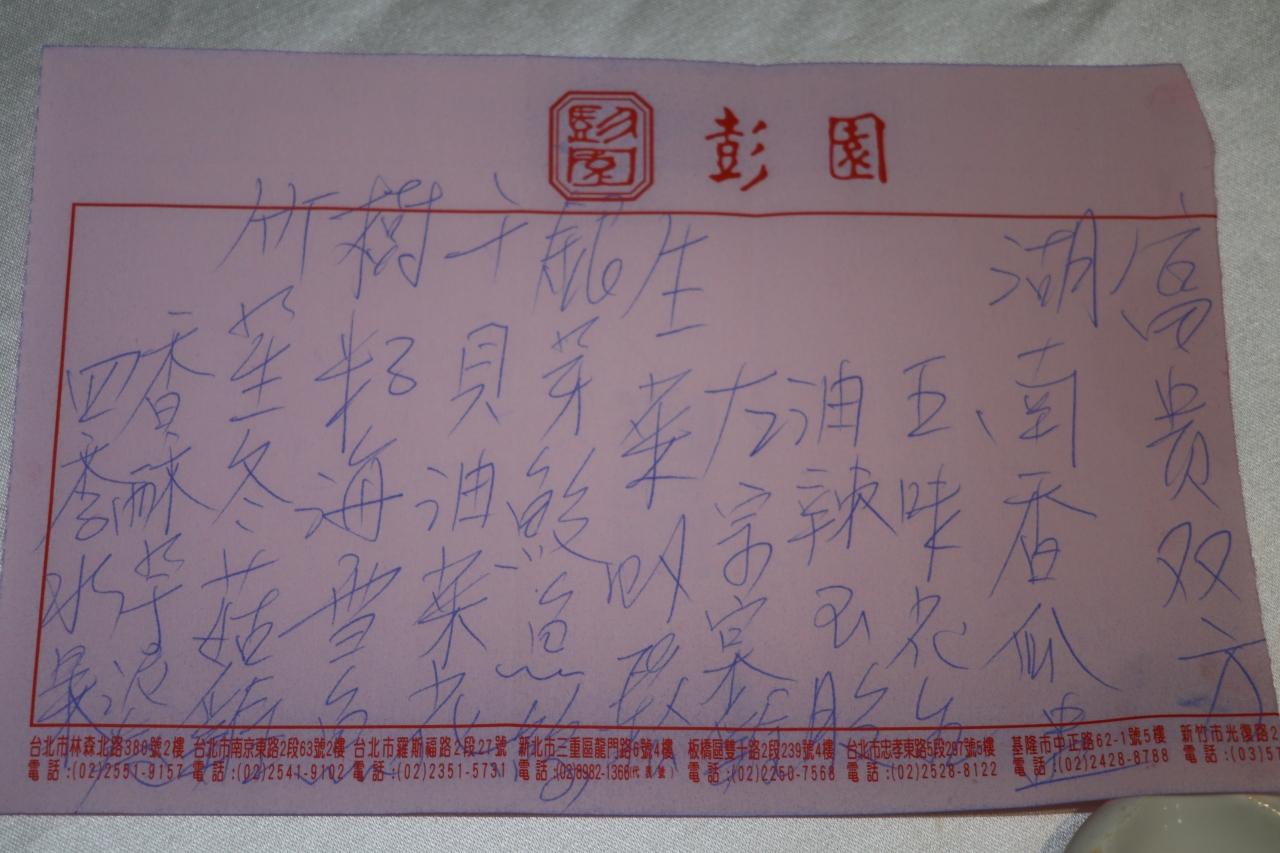 彭園
彭園
富贵双方
湖南香瓜盅
五味
油辣
左宗棠雞
生菜
鮑魚
干貝油菜
樹籽海雪魚
竹笙冬菇
香酥芋泥
四季水果
台北市林森北路380號2樓
電話:(02)2551-9157
台北市南京東路2段63號2樓
電話:(02)2541-9102
台北市羅斯福路2段27號
電話:(02)2351-5731
新北市三重區龍門路6號4樓
電話:(02)8982-1368(代表號)
板橋區雙十路2段239號4樓
電話:(02)2250-7566
台北市忠孝東路5段297號5樓
電話:(02)2528-8122
基隆市中正路62-1號5樓
電話:(02)2428-8788
新竹市光復路2
電話:(03)5